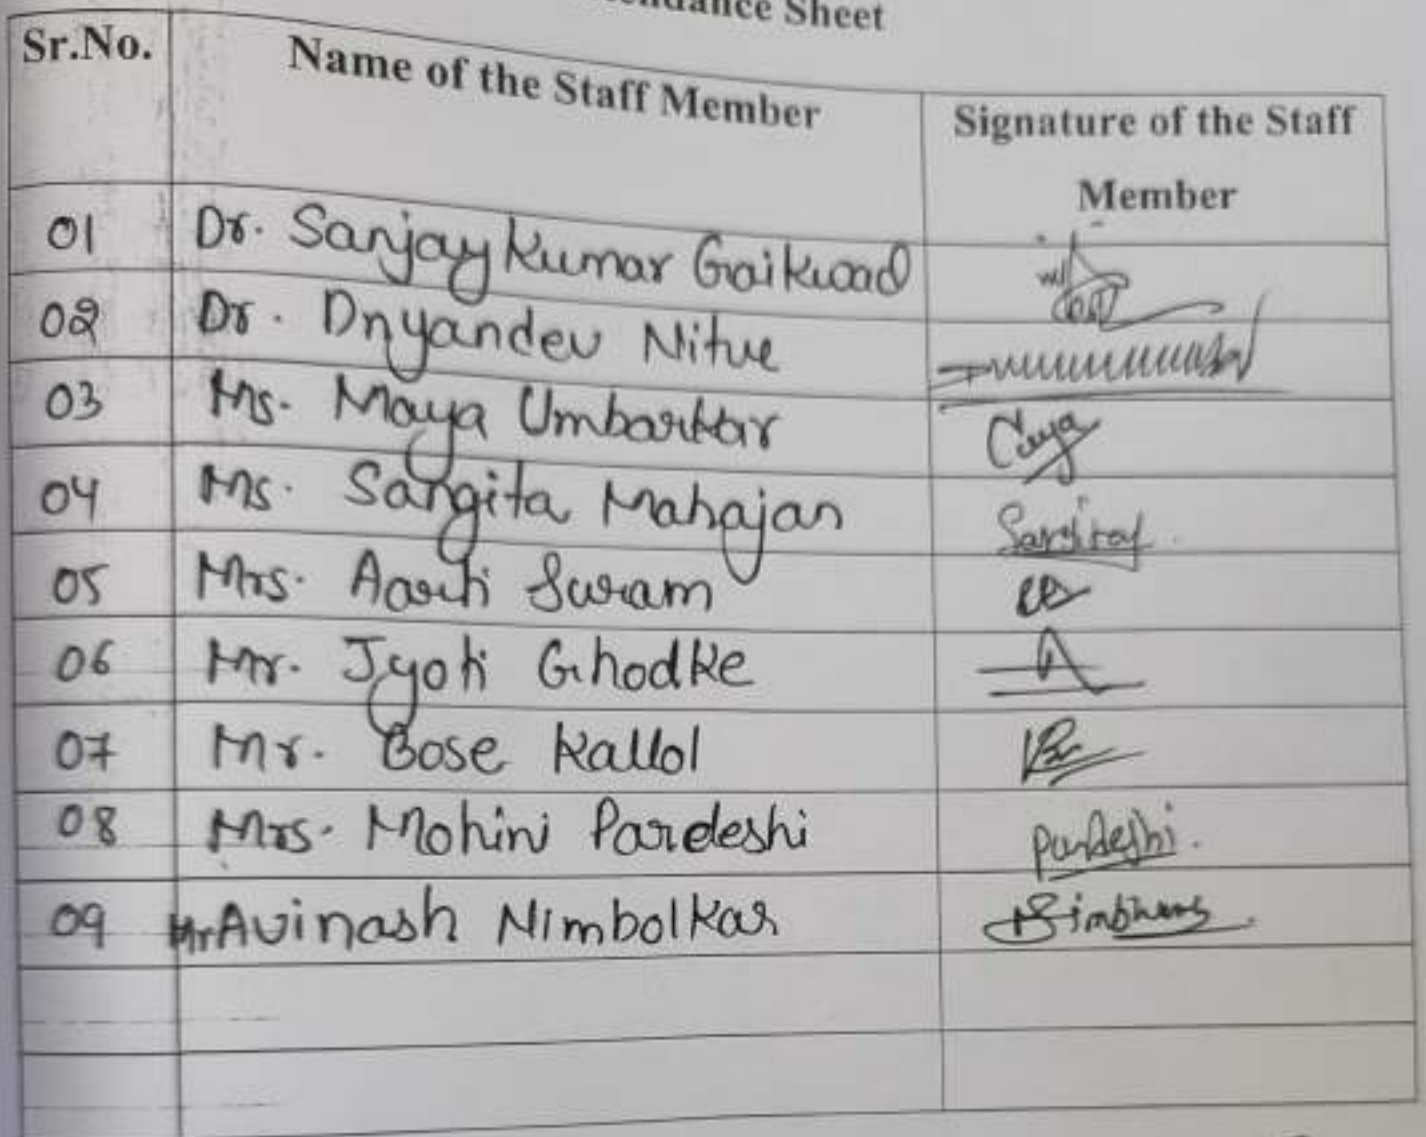 Sheet
Sr.No. Name of the Staff Member Signature of the Staff
Member
01 Dr. Sanjay Kumar Gaikwad
02 Dr. Dnyandev Nitve
03 Ms. Maya Umbarkar
04 Ms. Sangita Mahajan
05 Mrs. Aarti Suram
06 Mr. Jyoti Ghodke
07 Mr. Bose Kallol
08 Mrs. Mohini Pardeshi Pardeshi.
09 Mr Avinash Nimbolkar